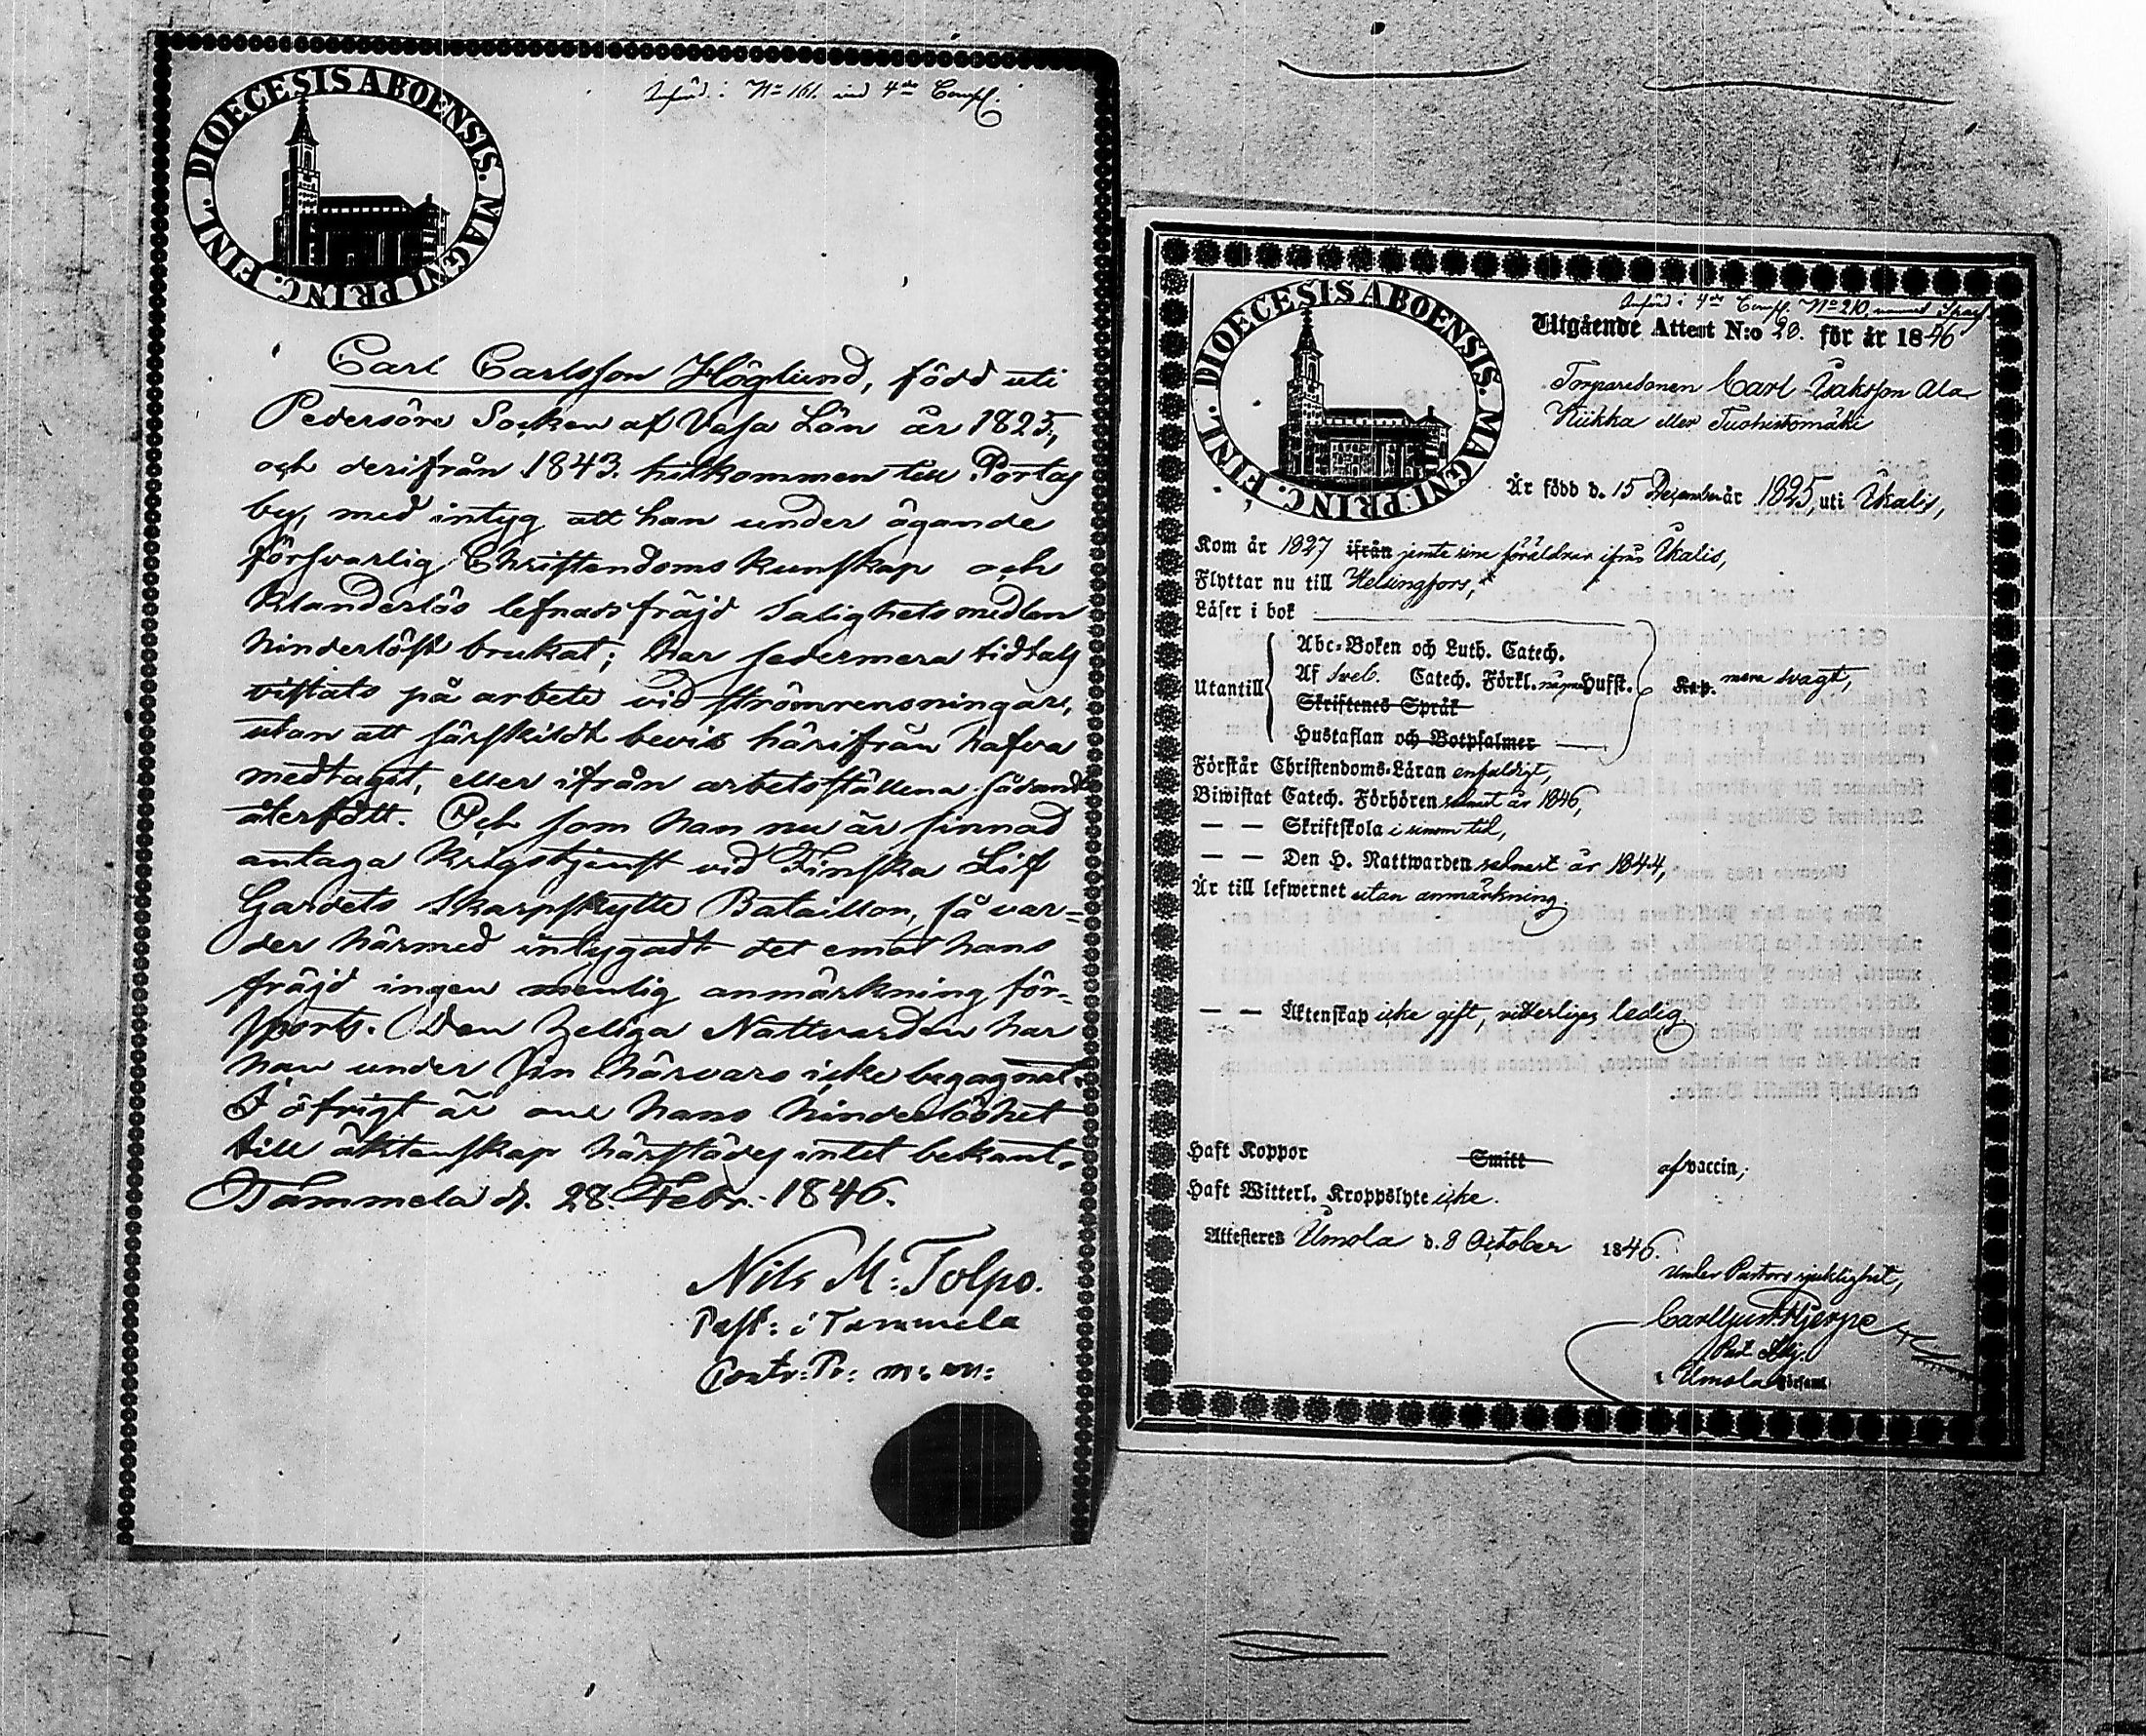 DIOECESIS ABOENSIS. MAGNI PRINC. FINL.
Införd i No 161. vid 4de Comp.
Carl Carlsson Höglund, född uti
Pedersöre Socken af Vasa Län år 1825,
och derifrån 1843. hitkommen till Portas
by, med intyg att han under ägande
försvarlig Christendoms kunskap och
klanderlös lefnadsfräjd salighetsmedlen
hinderlöst brukat; har sedermera tidtals
vistats på arbete vid strömrensningar,
utan att särskildt bevis härifrån hafva
medtagit, eller ifrån arbetsställena sådandt
återfått. Och som han nu är sinnad
antaga krigstjenst vid Finska Lif
Gardets Skarpskytte Bataillon, så var=
der härmed intygadt det emot hans
fräjd ingen menlig anmärkning för=
sports. Den heliga Nattvarden har
han under sin härvaro icke begagnat.
I öfrigt är om hans hinderlöshet
till äktenskap härstädes intet bekant.
Tammela d. 28. Febr. 1846.
Nils M. Tolpo.
Past: i Tammela
Contr: Pr: m. m:
DIOECESIS ABOENSIS. MAGNI PRINC. FINL.
Införd i 4de Comp. No 210
Utgående Attest N:o 20. för år 1846
Torparesonen Carl Isaksson Ala
Kiikka eller Tuohistomäki
Är född d. 15 December år 1825, uti Ikalis,
Kom år 1827 ifrån jemte sine föräldrar ifrån Ikalis,
Flyttar nu till Helsingfors,
Läser i bok
Utantill
Abc-Boken och Luth. Catech.
Af Sveb. Catech. Förkl. några Hufst. Kap. mera svagt,
Skriftenes Språk
Hustaflan och Botpsalmer
Förstår Christendoms-Läran enfaldigt,
Biwistat Catech. Förhören sednast år 1846,
— — Skriftskola i sinom tid,
— — Den H. Nattwarden sednast år 1844,
Är till lefwernet utan anmärkning.
— — Äktenskap icke gift, vitterligen ledig
Haft Koppor Smitt af vaccin,
Haft Witterl. Kroppslyte icke.
Attesteres Urmola d. 8 October 1846.
Under Pastors sjuklighet,
Past. Adj.
i Urmola Församl.